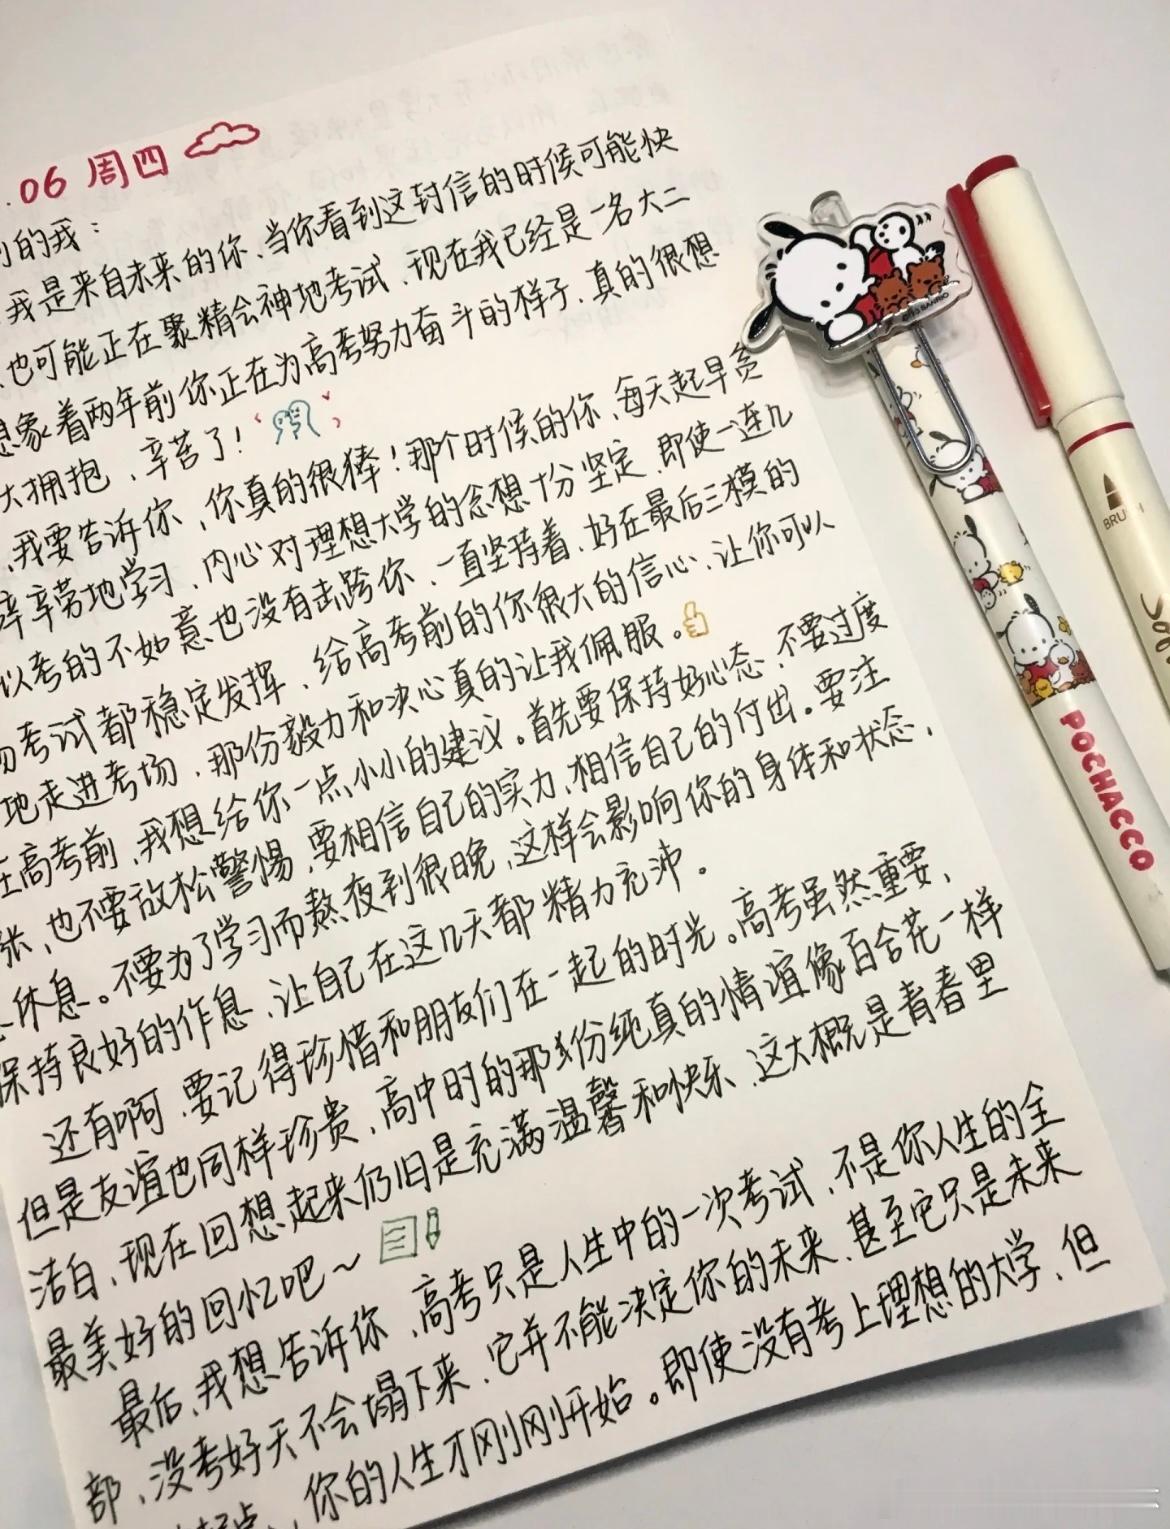 .06 周四
的我：
我是来自未来的你、当你看到这封信的时候可能快
也可能正在聚精会神地考试、现在我已经是一名大二
想象着两年前你正在为高考努力奋斗的样子、真的很想
大拥抱、辛苦了！
我要告诉你、你真的很棒！那个时候的你、每天起早贪
辛辛劳地学习、内心对理想大学的念想十分坚定、即使一连几
以考的不如意也没有击跨你、一直坚持着、好在最后三模的
考试都稳定发挥、给高考前的你很大的信心、让你可以
地走进考场、那份毅力和决心真的让我佩服。
在高考前、我想给你一点小小的建议。首先要保持好心态、不要过度
张、也不要放松警惕、要相信自己的实力、相信自己的付出。要注
休息。不要为了学习而熬夜到很晚、这样会影响你的身体和状态，
保持良好的作息、让自己在这几天都精力充沛。
还有啊、要记得珍惜和朋友们在一起的时光。高考虽然重要，
但是友谊也同样珍贵、高中时的那份纯真的情谊像百合花一样
洁白、现在回想起来仍旧是充满温馨和快乐、这大概是青春里
最美好的回忆吧～
最后、我想告诉你、高考只是人生中的一次考试、不是你人生的全
部、没考好天不会塌下来、它并不能决定你的未来、甚至它只是未来
起点、你的人生才刚刚开始。即使没有考上理想的大学、但
©'89 SANRIO
POCHACCO
BRUSH